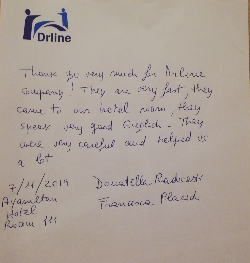 Drline
Thank you very much for Drline
Company! They are very fast, they
came to our hotel room, they
speak very good English. They
were very careful and helped us
a lot
7/11/2019 Donatella
Hotel Francesca
Room 111